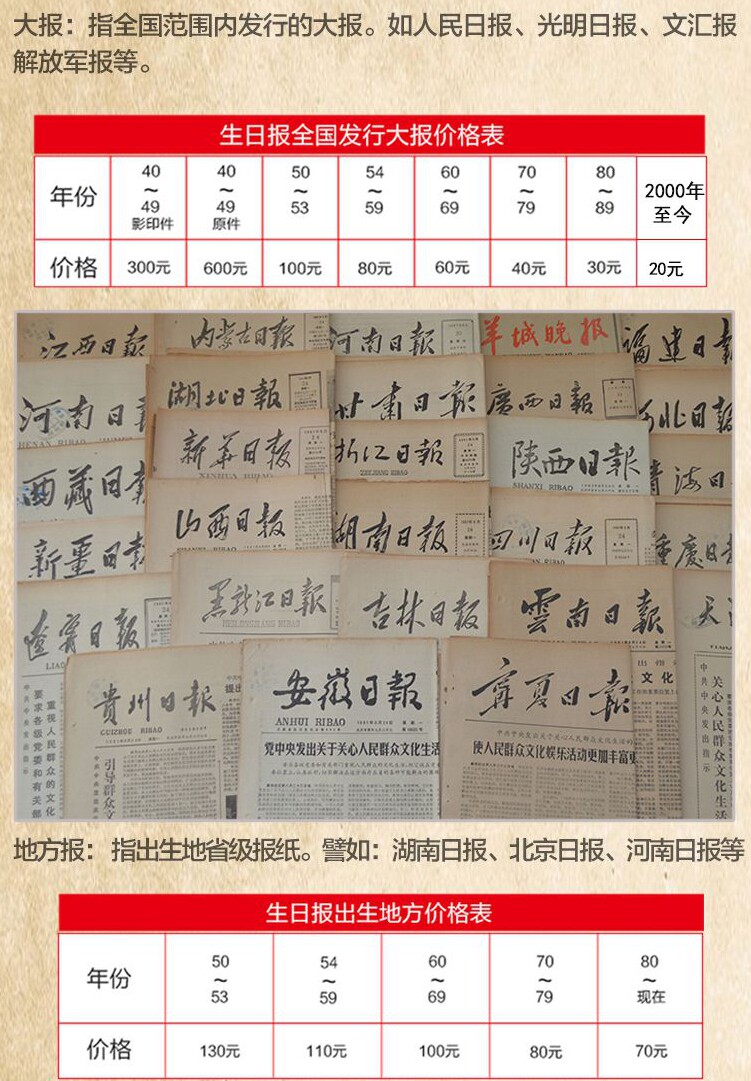 大报：指全国范围内发行的大报。如人民日报、光明日报、文汇报
解放军报等。
生日报全国发行大报价格表
年份 40~49影印件 40~49原件 50~53 54~59 60~69 70~79 80~89 2000年至今
价格 300元 600元 100元 80元 60元 40元 30元 20元
江西日报
内蒙古日報
河南日报
羊城晚报
福建日报
河南日报
湖北日報
甘肃日报
廣西日報
河北日报
HENAN RIBAO
新华日报
XINHUA RIBAO
浙江日报
ZHEJIANG RIBAO
陕西日报
SHANXI RIBAO
青海日
西藏日报
山西日报
湖南日报
四川日报
重庆日
新疆日报
黑龙江日报
HEILONGJIANG RIBAO
吉林日报
雲南日報
天
遼寧日報
LIAO
贵州日报
GUIZHOU RIBAO
安徽日报
ANHUI RIBAO
宁夏日报
党中央发出关于关心人民群众文化生活
使人民群众文化娱乐活动更加丰富
重视人民群众的文化
要求各级党委和有关部
引导群众文
关心人民群众文化生活
中共中央发出指示
地方报： 指出生地省级报纸。譬如：湖南日报、北京日报、河南日报等
生日报出生地方价格表
年份 50~53 54~59 60~69 70~79 80~现在
价格 130元 110元 100元 80元 70元